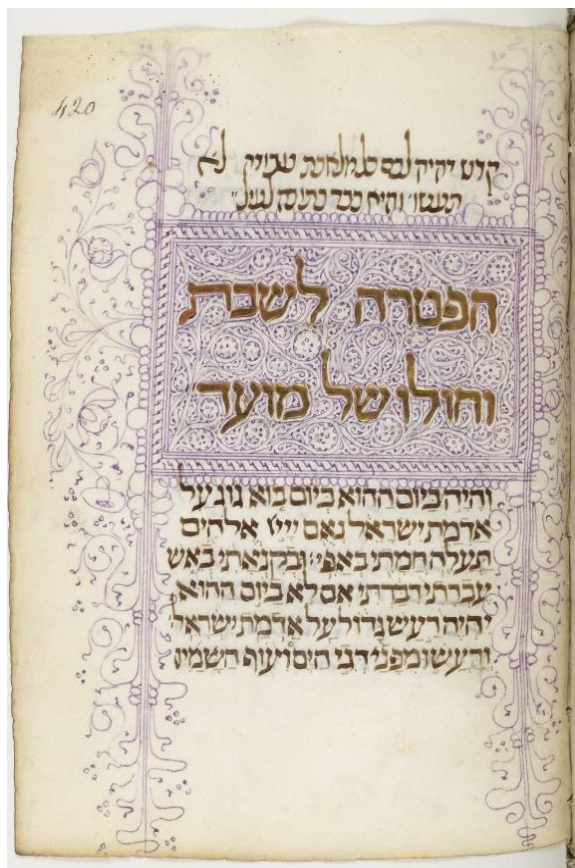 420
קדש יהיה לכם כל מלאכת עבודה לא
תעשו
הפטרה לשבת
וחולו של מועד
והיה ביום ההוא ביום בוא גוג על
אדמת ישראל נאם ייי אלהים
תעלה חמתי באפי ובקנאתי באש
עברתי דברתי אם לא ביום ההוא
יהיה רעש גדול על אדמת ישראל
ורעשו מפני דגי הים ועוף השמים